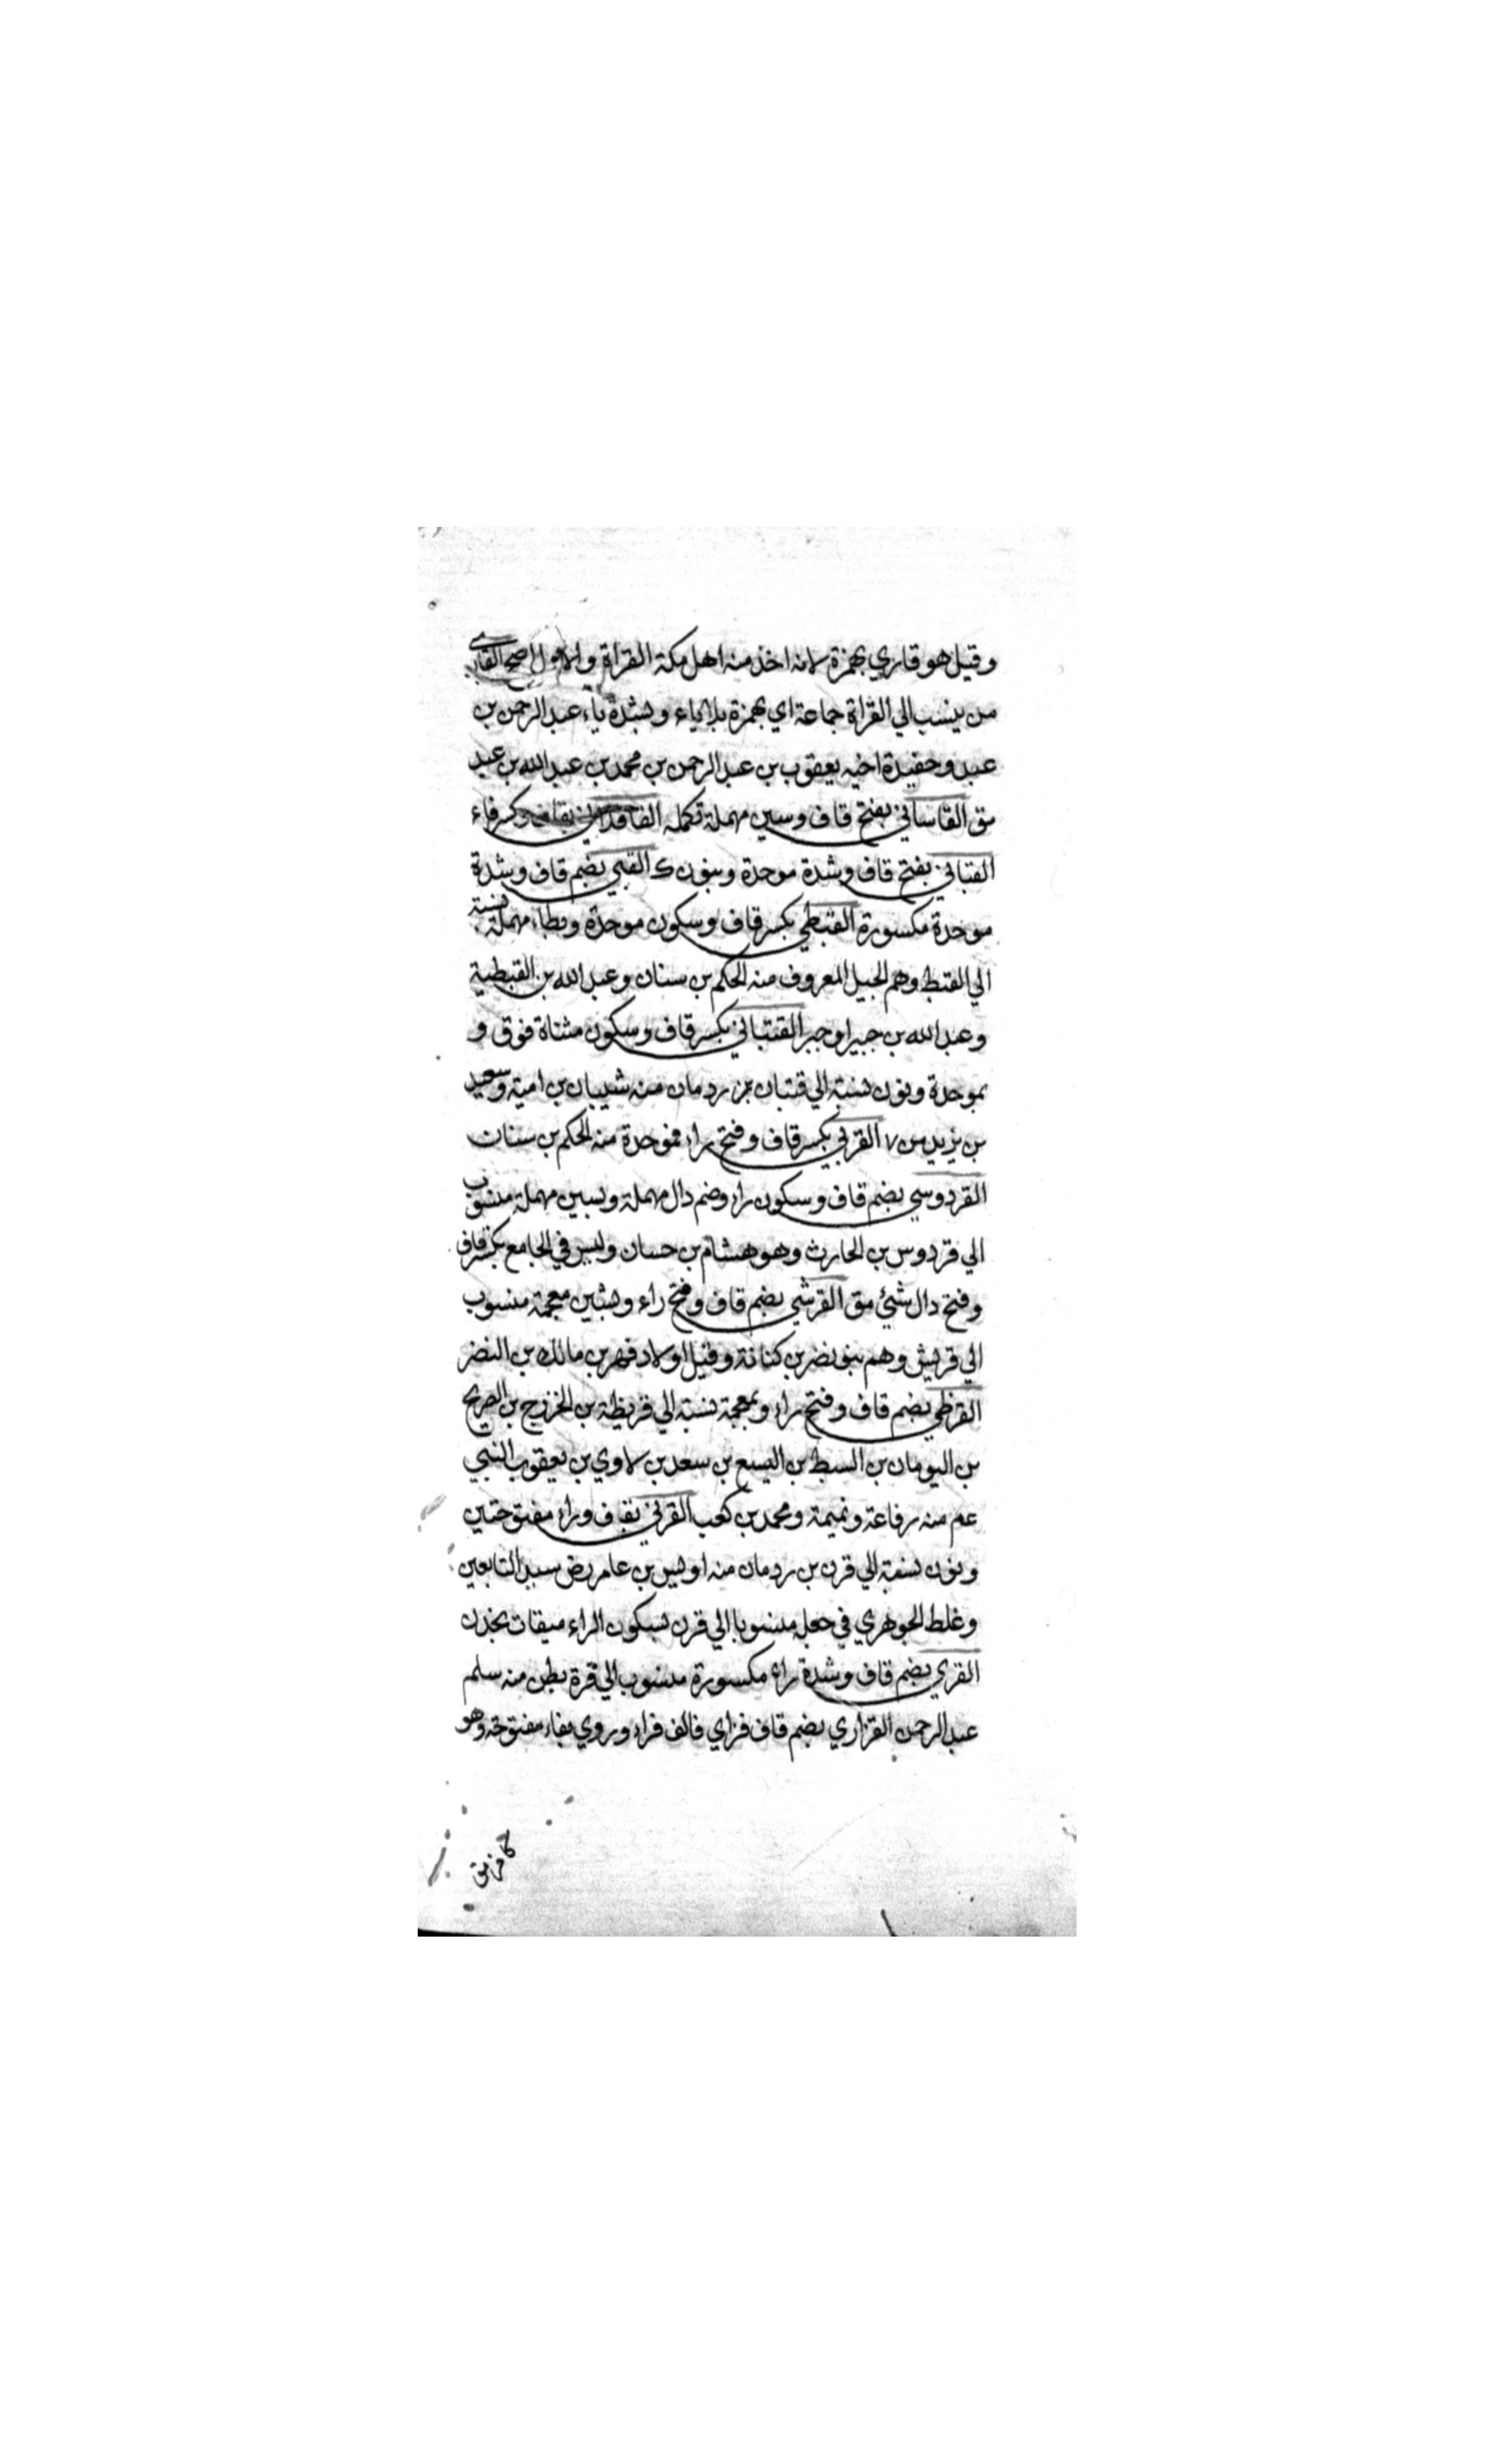 وقيل هو قاري بهمزة لانه اخذ منه اهل مكة القراة والاول اصح القاري
من ينسب الي القراة جماعة اي بهمزة بلا ياء وبشدة ياء عبد الرحمن بن
عبد وحفيدة اخيه يعقوب بن عبد الرحمن بن محمد بن عبد الله بن عبد
مق القاساني بفتح قاف وسين مهملة تكمله بقاف وكسر فاء
القباني بفتح قاف وشدة موحدة وبنون ك القبي بضم قاف وشدة
موحدة مكسورة القبطي بكسر قاف وسكون موحدة وبطاء مهملة نسبة
الي القبط وهم الجيل المعروف منه الحكم بن سنان وعبد الله بن القبطية
وعبد الله بن جبير او جبر القتباني بكسر قاف وسكون مثناة فوق و
بموحدة ونون نسبة الي قتبان بن ردمان منه شيبان بن امية وسعيد
بن يزيد س ٧ القربي بكسر قاف وفتح راء فموحدة منه الحكم بن سنان
القردوسي بضم قاف وسكون راء وضم دال مهملة وبسين مهملة منسوب
الي قردوس بن الحارث وهو هشام بن حسان وليس في الجامع بكسر قاف
وفتح دال شيئ مق القرشي بضم قاف وفتح راء وبشين معجمة منسوب
الي قريش وهم بنو نضر بن كنانة وقيل اولاد فهر بن مالك بن النضر
القرظي بضم قاف وفتح راء وبمعجمة نسبة الي قريظة بن الخزرج بن الصريح
بن اليومان بن السبط بن اليسع بن سعد بن لاوي بن يعقوب النبي
عم منه رفاعة ونميمة ومحمد بن كعب القرني بقاف وراء مفتوحتين
ونون نسبة الي قرن بن ردمان منه اويس بن عامر رض سيد التابعين
وغلط الجوهري في جعله منسوبا الي قرن بسكون الراء ميقات نجد ن
القري بضم قاف وشدة راء مكسورة منسوب الي قرة بطن منه سلم
عبد الرحمن القزاري بضم قاف فزاي فالف فراء وروي بفاء مفتوحة وهو